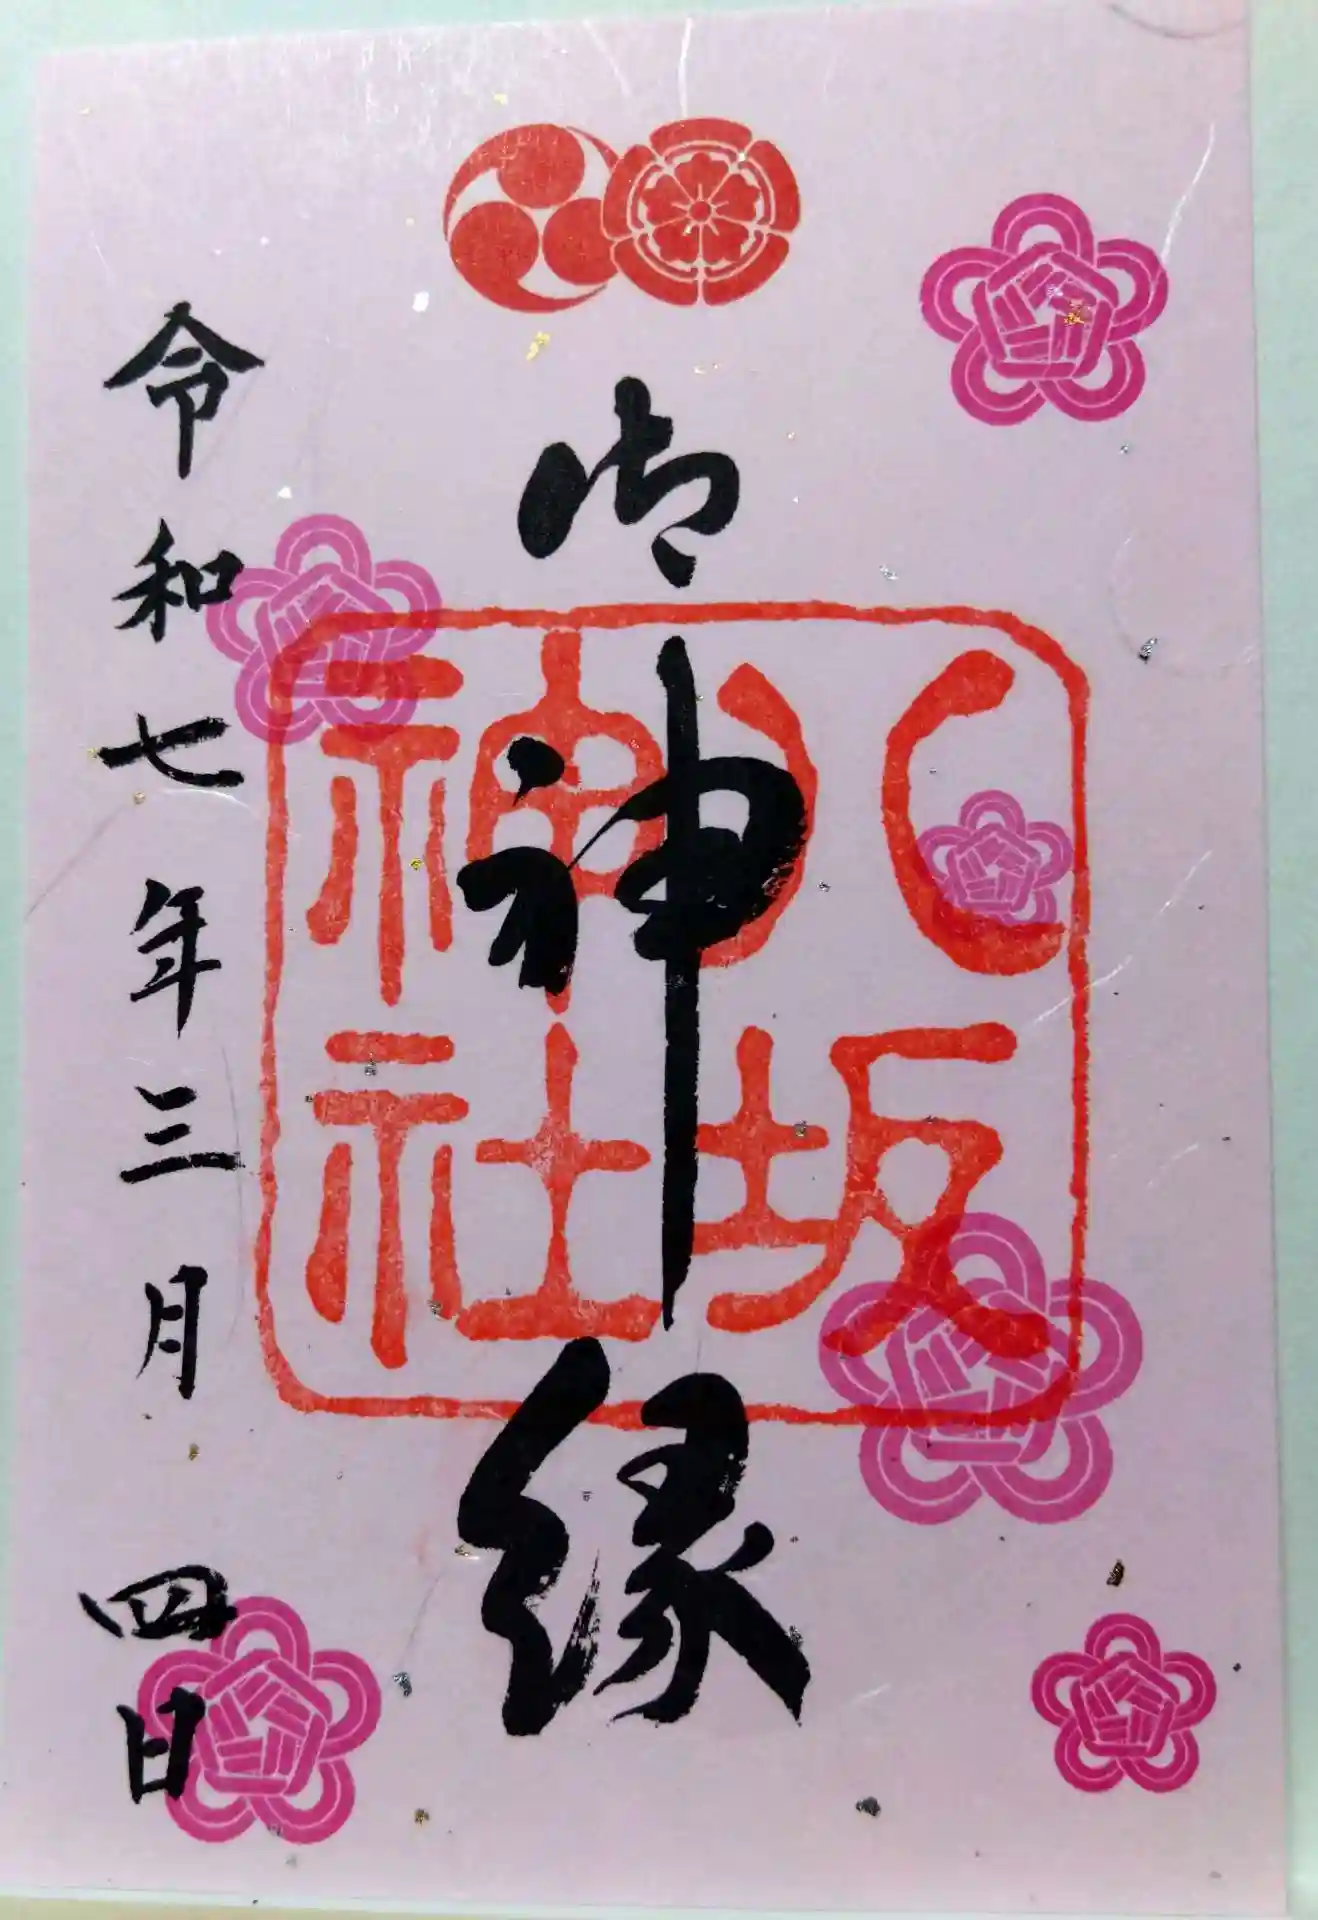 御神縁
八坂
神社
令和七年三月四日